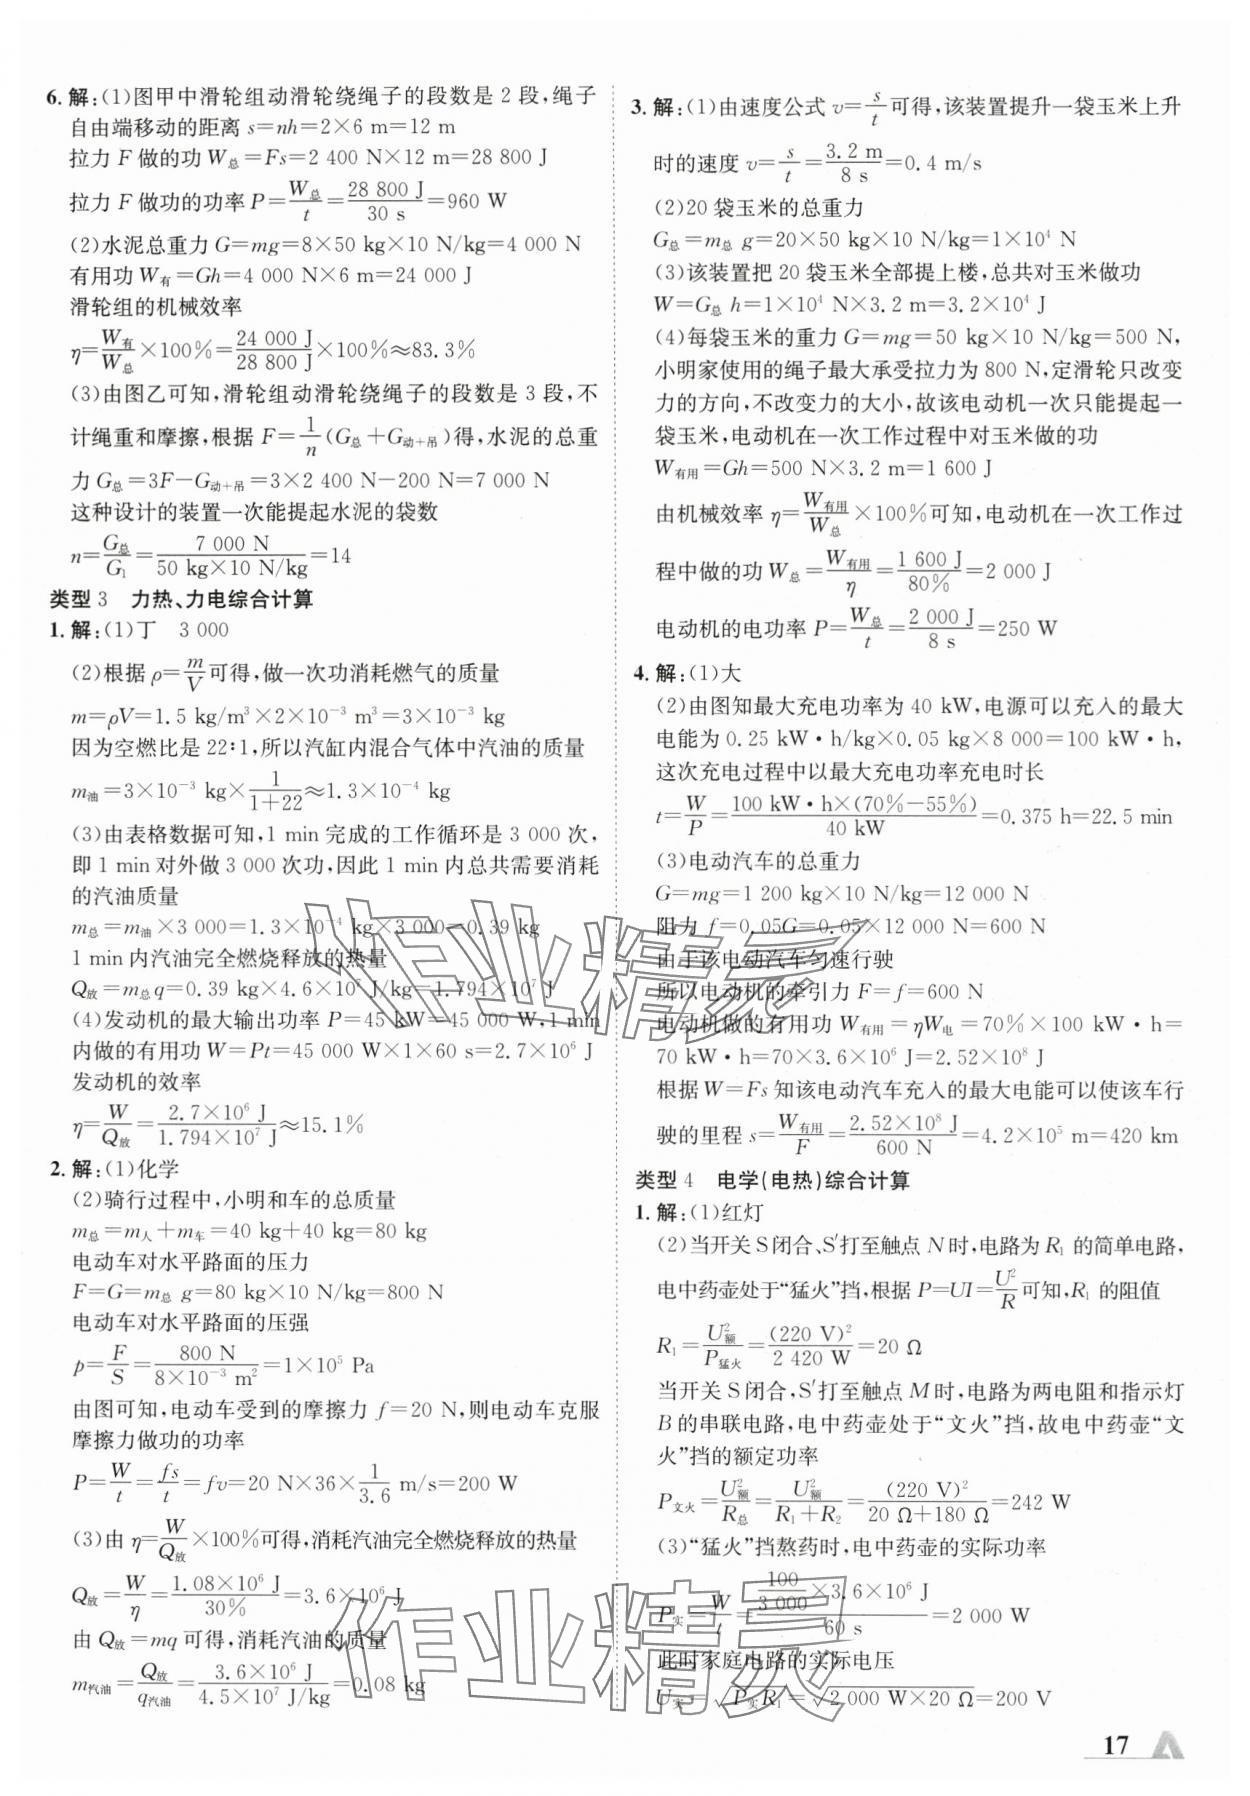 6. 解:(1)图甲中滑轮组动滑轮绕绳子的段数是 2 段,绳子
自由端移动的距离 s=nh=2×6 m=12 m
拉力 F 做的功 W总=Fs=2 400 N×12 m=28 800 J
拉力 F 做功的功率 P=W总/t=28 800 J/30 s=960 W
(2)水泥总重力 G=mg=8×50 kg×10 N/kg=4 000 N
有用功 W有=Gh=4 000 N×6 m=24 000 J
滑轮组的机械效率
η=W有/W总×100%=24 000 J/28 800 J×100%≈83.3%
(3)由图乙可知,滑轮组动滑轮绕绳子的段数是 3 段,不
计绳重和摩擦,根据 F=1/n(G总+G动+吊)得,水泥的总重
力 G总=3F-G动+吊=3×2 400 N-200 N=7 000 N
这种设计的装置一次能提起水泥的袋数
n=G总/G₁=7 000 N/50 kg×10 N/kg=14
类型 3 力热、力电综合计算
1. 解:(1)丁 3 000
(2)根据 ρ=m/V可得,做一次功消耗燃气的质量
m=ρV=1.5 kg/m³×2×10⁻³ m³=3×10⁻³ kg
因为空燃比是 22∶1,所以汽缸内混合气体中汽油的质量
m油=3×10⁻³ kg×1/(1+22)≈1.3×10⁻⁴ kg
(3)由表格数据可知,1 min 完成的工作循环是 3 000 次,
即 1 min 对外做 3 000 次功,因此 1 min 内总共需要消耗
的汽油质量
m总=m油×3 000=1.3×10⁻⁴ kg×3 000=0.39 kg
1 min 内汽油完全燃烧释放的热量
Q放=m总q=0.39 kg×4.6×10⁷ J/kg=1.794×10⁷ J
(4)发动机的最大输出功率 P=45 kW=45 000 W,1 min
内做的有用功 W=Pt=45 000 W×1×60 s=2.7×10⁶ J
发动机的效率
η=W/Q放=2.7×10⁶ J/1.794×10⁷ J≈15.1%
2. 解:(1)化学
(2)骑行过程中,小明和车的总质量
m总=m人+m车=40 kg+40 kg=80 kg
电动车对水平路面的压力
F=G=m总 g=80 kg×10 N/kg=800 N
电动车对水平路面的压强
p=F/S=800 N/8×10⁻³ m²=1×10⁵ Pa
由图可知,电动车受到的摩擦力 f=20 N,则电动车克服
摩擦力做功的功率
P=W/t=fs/t=fv=20 N×36×1/3.6 m/s=200 W
(3)由 η=W/Q放×100%可得,消耗汽油完全燃烧释放的热量
Q放=W/η=1.08×10⁶ J/30%=3.6×10⁶ J
由 Q放=mq 可得,消耗汽油的质量
m汽油=Q放/q汽油=3.6×10⁶ J/4.5×10⁷ J/kg=0.08 kg
3. 解:(1)由速度公式 v=s/t可得,该装置提升一袋玉米上升
时的速度 v=s/t=3.2 m/8 s=0.4 m/s
(2)20 袋玉米的总重力
G总=m总 g=20×50 kg×10 N/kg=1×10⁴ N
(3)该装置把 20 袋玉米全部提上楼,总共对玉米做功
W=G总 h=1×10⁴ N×3.2 m=3.2×10⁴ J
(4)每袋玉米的重力 G=mg=50 kg×10 N/kg=500 N,
小明家使用的绳子最大承受拉力为 800 N,定滑轮只改变
力的方向,不改变力的大小,故该电动机一次只能提起一
袋玉米,电动机在一次工作过程中对玉米做的功
W有用=Gh=500 N×3.2 m=1 600 J
由机械效率 η=W有用/W总×100%可知,电动机在一次工作过
程中做的功 W总=W有用/η=1 600 J/80%=2 000 J
电动机的电功率 P=W总/t=2 000 J/8 s=250 W
4. 解:(1)大
(2)由图知最大充电功率为 40 kW,电源可以充入的最大
电能为 0.25 kW·h/kg×0.05 kg×8 000=100 kW·h,
这次充电过程中以最大充电功率充电时长
t=W/P=100 kW·h×(70%-55%)/40 kW=0.375 h=22.5 min
(3)电动汽车的总重力
G=mg=1 200 kg×10 N/kg=12 000 N
阻力 f=0.05G=0.05×12 000 N=600 N
由于该电动汽车匀速行驶
所以电动机的牵引力 F=f=600 N
电动机做的有用功 W有用=ηW电=70%×100 kW·h=
70 kW·h=70×3.6×10⁶ J=2.52×10⁸ J
根据 W=Fs 知该电动汽车充入的最大电能可以使该车行
驶的里程 s=W有用/F=2.52×10⁸ J/600 N=4.2×10⁵ m=420 km
类型 4 电学(电热)综合计算
1. 解:(1)红灯
(2)当开关 S闭合、S′打至触点 N 时,电路为 R₁ 的简单电路,
电中药壶处于“猛火”挡,根据 P=UI=U²/R可知,R₁ 的阻值
R₁=U额²/P猛火=(220 V)²/2 420 W=20 Ω
当开关 S闭合,S′打至触点 M 时,电路为两电阻和指示灯
B 的串联电路,电中药壶处于“文火”挡,故电中药壶“文
火”挡的额定功率
P文火=U额²/R总=U额²/(R₁+R₂)=(220 V)²/(20 Ω+180 Ω)=242 W
(3)“猛火”挡熬药时,电中药壶的实际功率
P实=W/t=(100/3 000×3.6×10⁶ J)/60 s=2 000 W
此时家庭电路的实际电压
U实=√(P实R₁)=√(2 000 W×20 Ω)=200 V
作业精灵
作业精灵
17